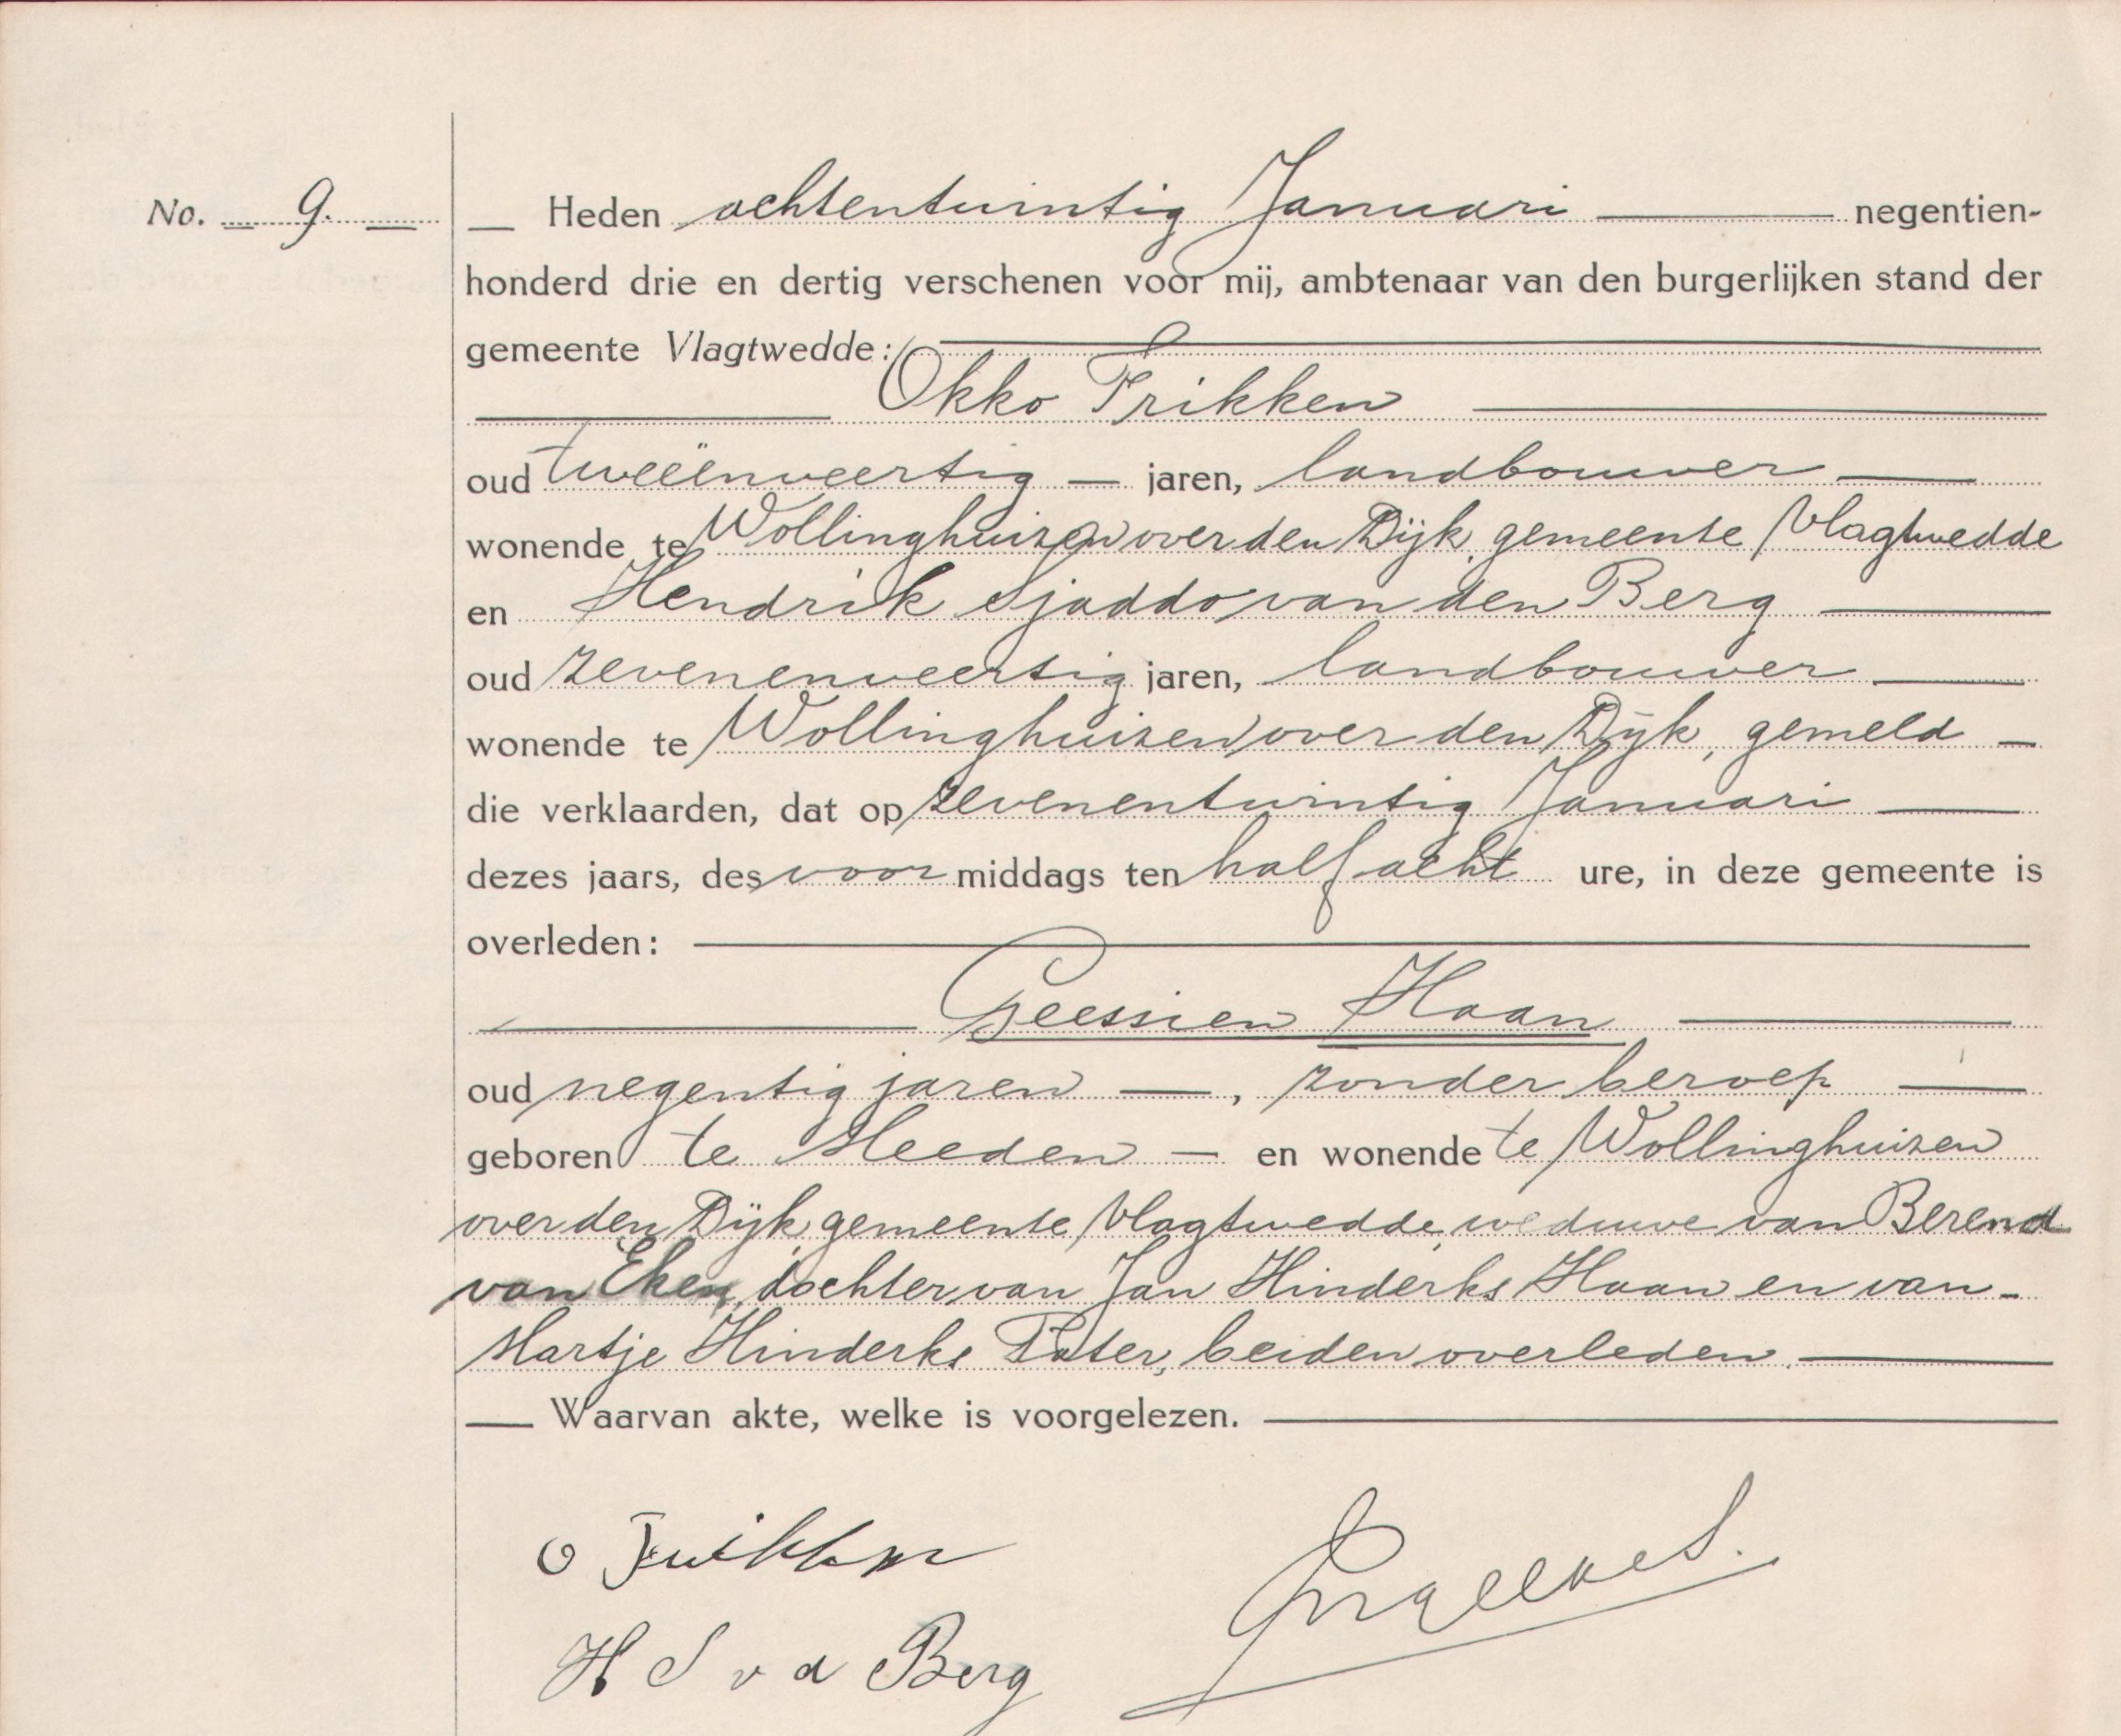 No. 9. Heden achtentwintig Januari negentien-
honderd drie en dertig verschenen voor mij, ambtenaar van den burgerlijken stand der
gemeente Vlagtwedde:
Okko Frikken
oud tweeënveertig jaren, landbouwer
wonende te Wollinghuizen over den Dijk, gemeente Vlagtwedde
en Hendrik Sjaddo van den Berg
oud zevenenveertig jaren, landbouwer
wonende te Wollinghuizen over den Dijk, gemeld
die verklaarden, dat op zevenentwintig Januari
dezes jaars, des voor middags ten half acht ure, in deze gemeente is
overleden:
Geessien Haan
oud negentig jaren, zonder beroep
geboren te Meeden en wonende te Wollinghuizen
over den Dijk, gemeente Vlagtwedde, weduwe van Berend
van Eken, dochter van Jan Hinderks Haan en van
Martje Hinderks Pater, beiden overleden.
Waarvan akte, welke is voorgelezen.
O Frikken
H S v d Berg